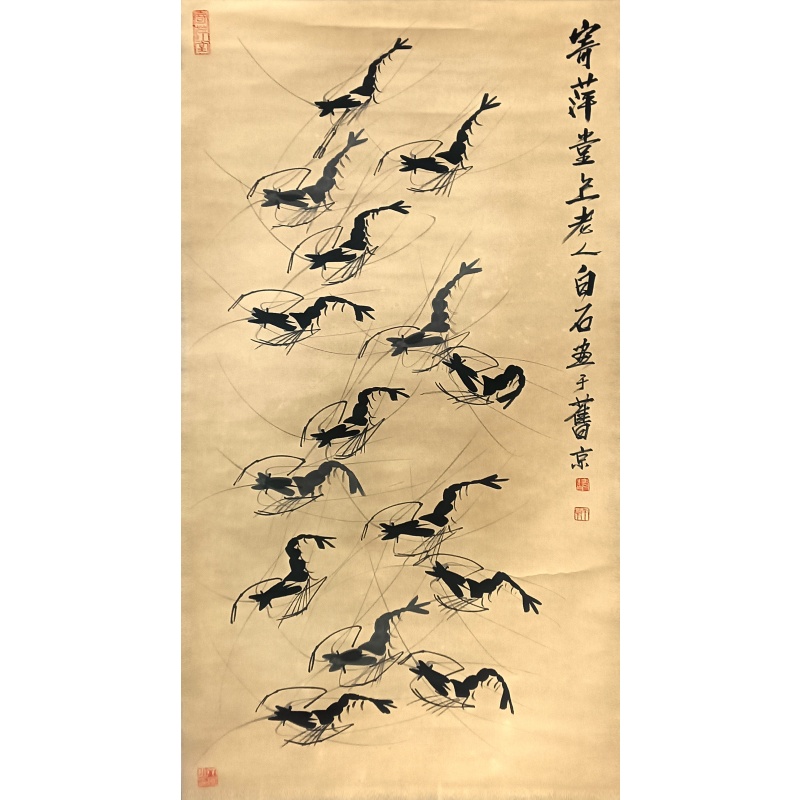 寄萍堂上老人白石畫于舊京